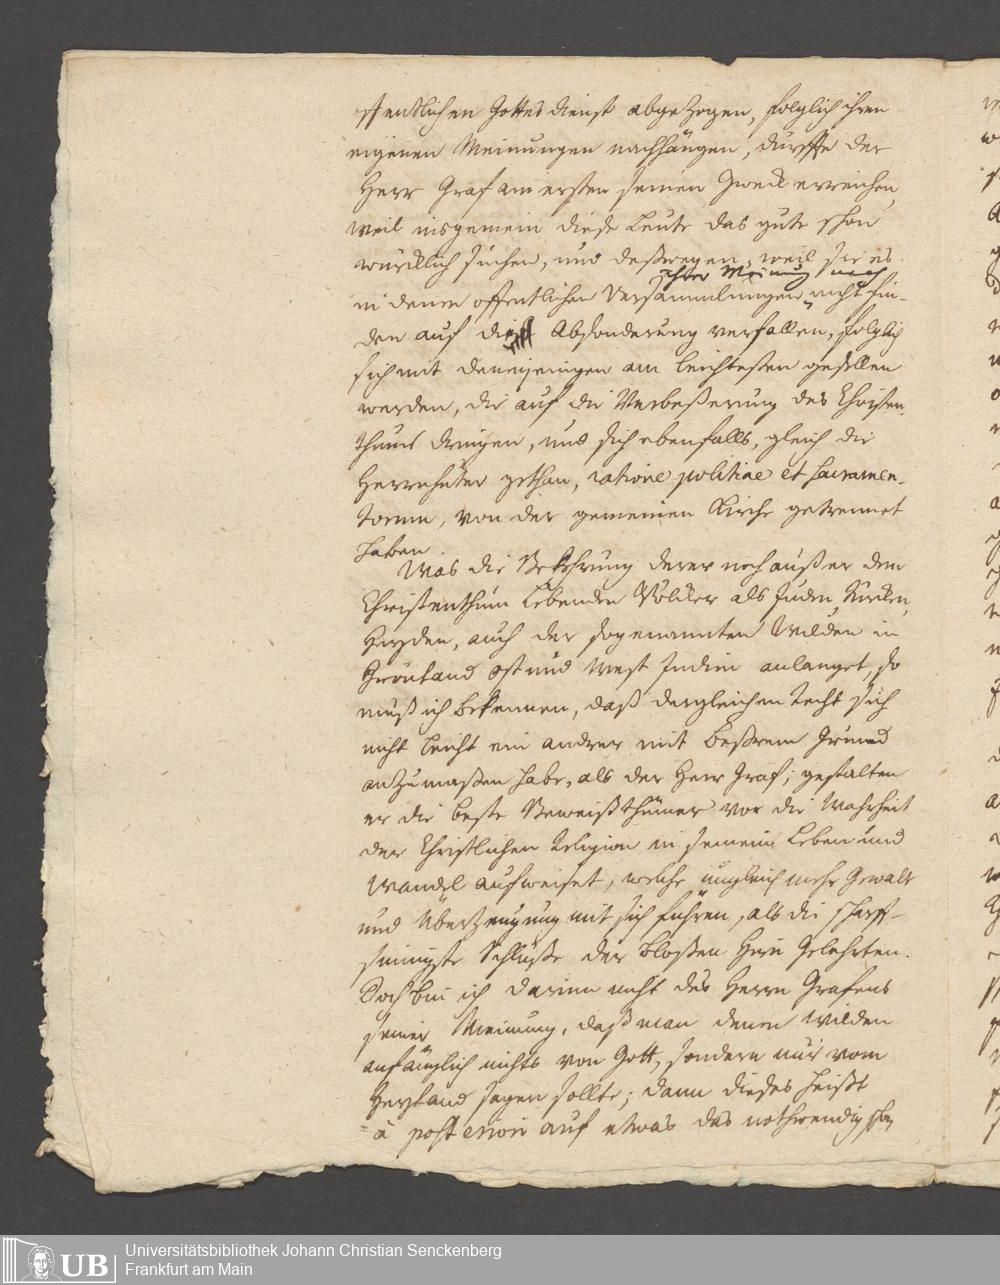 offentlichen Gottesdienst abgezogen, folglich ihren
eigenen Meinungen nachhängen, dürffte der
Herr Graf am ersten seinen Zweck erreichen,
weil insgemein diese Leute das gute schon
würcklich suchen, und deßwegen, weil sie es
in denen offentlichen Versammlungen ihrer Meinung nach nicht fin-
den auf die Absonderung verfallen, folglich
sich mit denenjenigen am leichtesten gesellen
werden, die auf die Verbeßerung des Christen-
thums dringen, und sich ebenfalls, gleich die
Herrnhuter gethan, ratione politiae et sacramen-
torum, von der gemeinen Kirche getrennet
haben.
Was die Bekehrung derer noch außer dem
Christenthum lebenden Völcker als Juden, Türcken,
Heyden, auch der sogenannten Wilden in
Grönland Ost und West Indien anlanget, so
muß ich bekennen, daß dergleichen Recht sich
nicht leicht ein andrer mit beßrem Grund
anzumaßen habe, als der Herr Graf; gestalten
er die beste Beweißthümer vor die Wahrheit
der Christlichen Religion in seinem Leben und
Wandel aufweiset, welche ungleich mehr Gewalt
und Überzeugung mit sich führen, als die scharff-
sinnigste Schlüße der bloßen Hirn Gelehrten.
Doch bin ich darinn nicht des Herrn Grafens
seiner Meinung, daß man denen Wilden
anfänglich nichts von Gott, sondern nur vom
Heyland sagen sollte; dann dieses heißt
à posteriori auf etwas das nothwendig schon
Universitätsbibliothek Johann Christian Senckenberg
Frankfurt am Main
UB